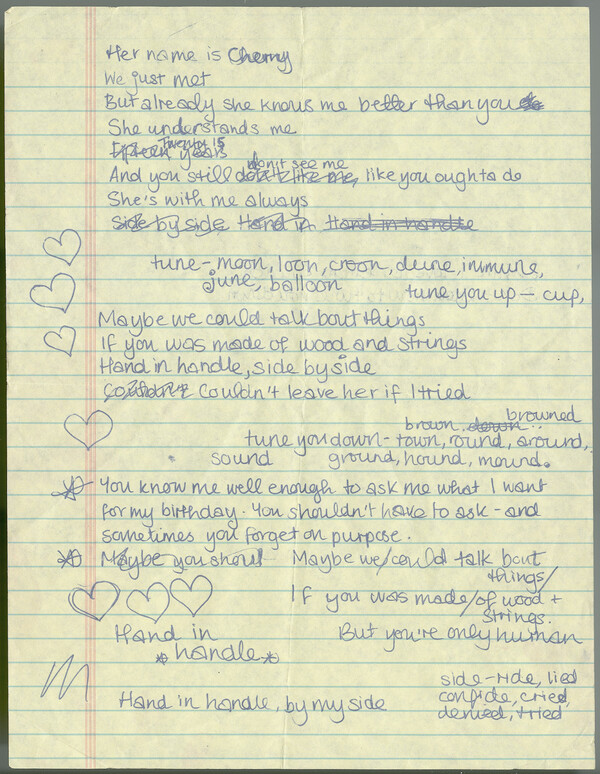 Her name is Cherry
We just met
But already she knows me better than you
She understands me
Twenty 15
Fifteen years
don't see me
And you still like me, like you ought to do
She's with me always
Side by side Hand in Hand in handle
tune - moon, loon, croon, dune, immune,
june, balloon tune you up - cup,
Maybe we could talk bout things
If you was made of wood and strings
Hand in handle, side by side
couldn't Couldn't leave her if I tried
browned
brown down
tune you down - town, round, around,
sound ground, hound, mound.
You know me well enough to ask me what I want
for my birthday. You shouldn't have to ask - and
sometimes you forget on purpose.
Maybe you shoul Maybe we/could talk bout
things/
If you was made/of wood +
strings.
Hand in But you're only human
handle
side-ride, lied
Hand in handle, by my side confide, cried,
denied, tried